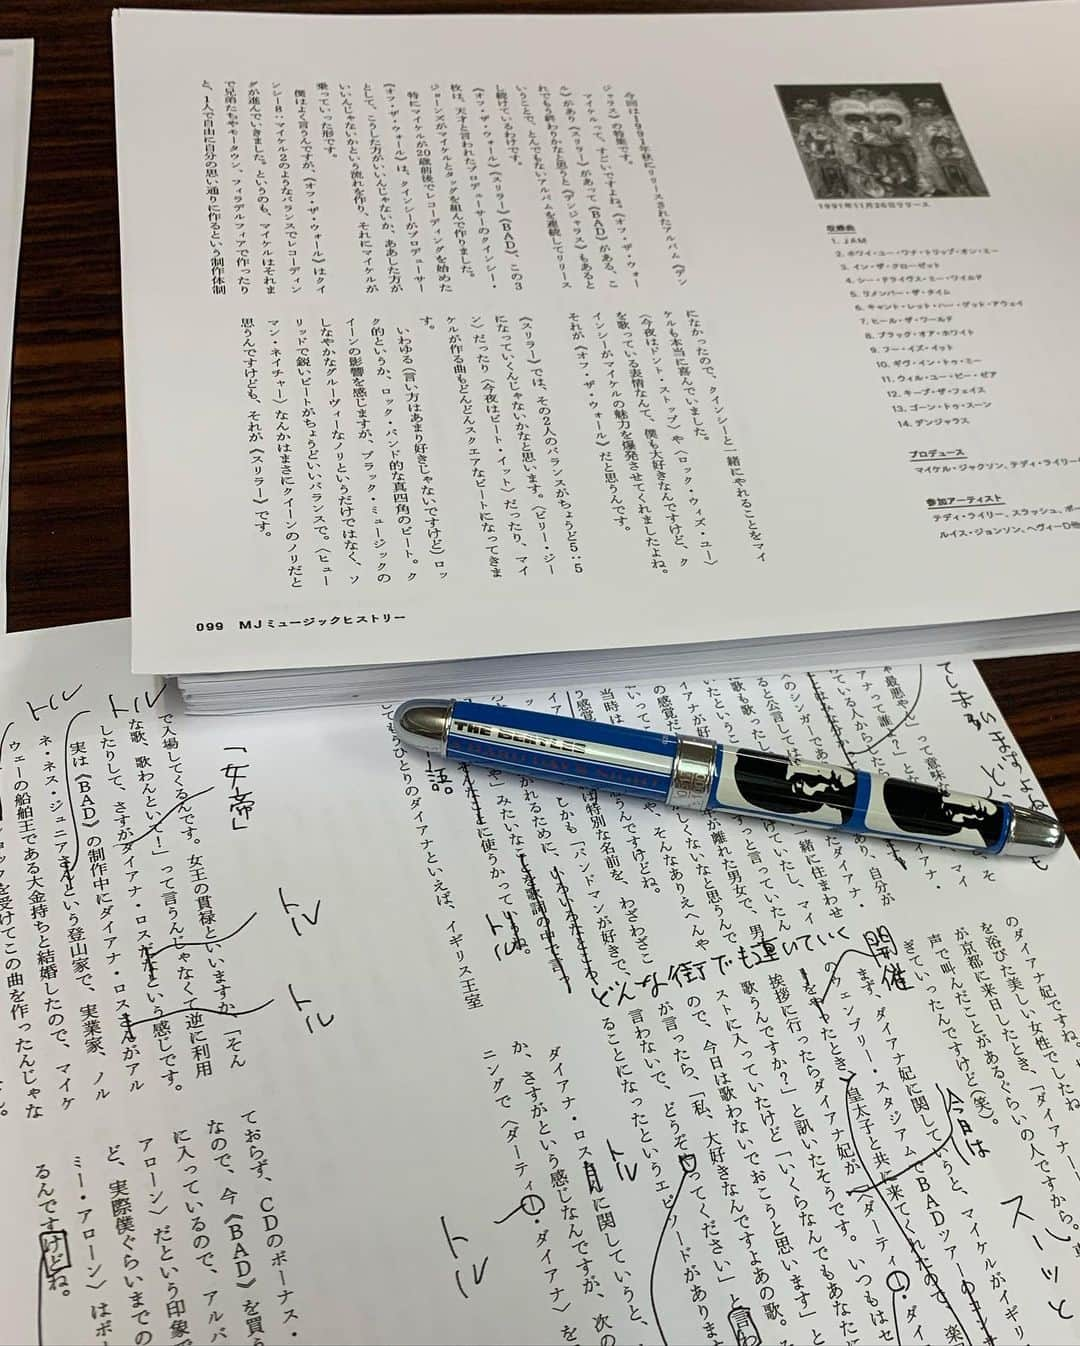 今回は1991年秋にリリースされたアルバム《デン
ジャラス》の特集です。
マイケルって、すごいですよね。《オフ・ザ・ウォー
ル》があり《スリラー》があって《BAD》がある、こ
れでもう終わりかなと思うと《デンジャラス》もあると
いうことで、とんでもないアルバムを連続してリリース
し続けているわけです。
《オフ・ザ・ウォール》《スリラー》《BAD》、この3
枚は、天才と言われたプロデューサーのクインシー・
ジョーンズがマイケルとタッグを組んで作りました。
特にマイケルが20歳前後でレコーディングを始めた
《オフ・ザ・ウォール》は、クインシーがプロデューサー
として、こうした方がいいんじゃないか、ああした方が
いいんじゃないかという流れを作り、それにマイケルが
乗っていった形です。
僕はよく言うんですが、《オフ・ザ・ウォール》はクイ
ンシー8：マイケル2のようなバランスでレコーディン
グが進んでいきました。というのも、マイケルはそれま
で兄弟たちやモータウン、フィラデルフィアで作ったり
と、1人で自由に自分の思い通りに作るという制作体制
になかったので、クインシーと一緒にやれることをマイ
ケルも本当に喜んでいました。
〈今夜はドント・ストップ〉や〈ロック・ウィズ・ユー〉
を歌っている表情なんて、僕も大好きなんですけど、ク
インシーがマイケルの魅力を爆発させてくれましたよね。
それが《オフ・ザ・ウォール》だと思うんです。
《スリラー》では、その2人のバランスがちょうど5：5
になっていくんじゃないかなと思います。〈ビリー・ジー
ン〉だったり〈今夜はビート・イット〉だったり、マイ
ケルが作る曲もどんどんスクエアなビートになってきま
す。
いわゆる（言い方はあまり好きじゃないですけど）ロッ
ク的というか、ロック・バンド的な真四角のビート。ク
イーンの影響を感じますが、ブラック・ミュージックの
しなやかなグルーヴィーなノリというだけではなく、ソ
リッドで鋭いビートがちょうどいいバランスで。〈ヒュー
マン・ネイチャー〉なんかはまさにクイーンのノリだと
思うんですけども、それが《スリラー》です。
1991年11月26日リリース
収録曲
1. JAM
2. ホワイ・ユー・ワナ・トリップ・オン・ミー
3. イン・ザ・クローゼット
4. シー・ドライヴス・ミー・ワイルド
5. リメンバー・ザ・タイム
6. キャント・レット・ハー・ゲット・アウェイ
7. ヒール・ザ・ワールド
8. ブラック・オア・ホワイト
9. フー・イズ・イット
10. ギヴ・イン・トゥ・ミー
11. ウィル・ユー・ビー・ゼア
12. キープ・ザ・フェイス
13. ゴーン・トゥ・スーン
14. デンジャラス
プロデュース
マイケル・ジャクソン、テディ・ライリー
参加アーティスト
テディ・ライリー、スラッシュ、ポー
ルイス・ジョンソン、ヘヴィーD他
099 MJミュージックヒストリー
THE BEATLES
のダイアナ妃ですね。
を浴びた美しい女性でしたね
が京都に来日したとき、「ダイアナー
声で叫んだことがあるぐらいの人ですから。
ぎていったんですけど（笑）。
今日は
スーッと
開催
まず、ダイアナ妃に関していうと、マイケルがイギリ
のウェンブリー・スタジアムでBADツアーの
をやったとき、皇太子と共に来てくれたので、楽
挨拶に行ったらダイアナ妃が「〈ダーティー・ダイ
歌うんですか？」と訊いたそうです。いつもはセ
ストに入っていたけど「いくらなんでもあなたに
ので、今日は歌わないでおこうと思います」と
が言ったら、「私、大好きなんですよあの歌。
言わないで、どうぞやってください」と言わ
ることになったというエピソードがありま
どんな街でも連いていく
トル
トル
トル
トル
トル
トル
トル
「女帝」
してもうひとりのダイアナといえば、イギリス王室
ダイアナ・ロスに関していうと、
か、さすがという感じなんですが、次の
ニングで〈ダーティー・ダイアナ〉を
で入場してくるんです。女王の貫禄といいますか、「そん
な歌、歌わんといて！」って言うんじゃなくて逆に利用
したりして、さすがダイアナ・ロスだという感じです。
実は《BAD》の制作中にダイアナ・ロスさんがアル
ネ・ネス・ジュニアさんという登山家で、実業家、ノル
ウェーの船舶王である大金持ちと結婚したので、マイケ
ョックを受けてこの曲を作ったんじゃな
ておらず、CDのボーナス・
なので、今《BAD》を買う
に入っているので、アルバ
アローン〉だという印象で
ど、実際僕ぐらいまでの
ミー・アローン〉はボー
るんですけどね。